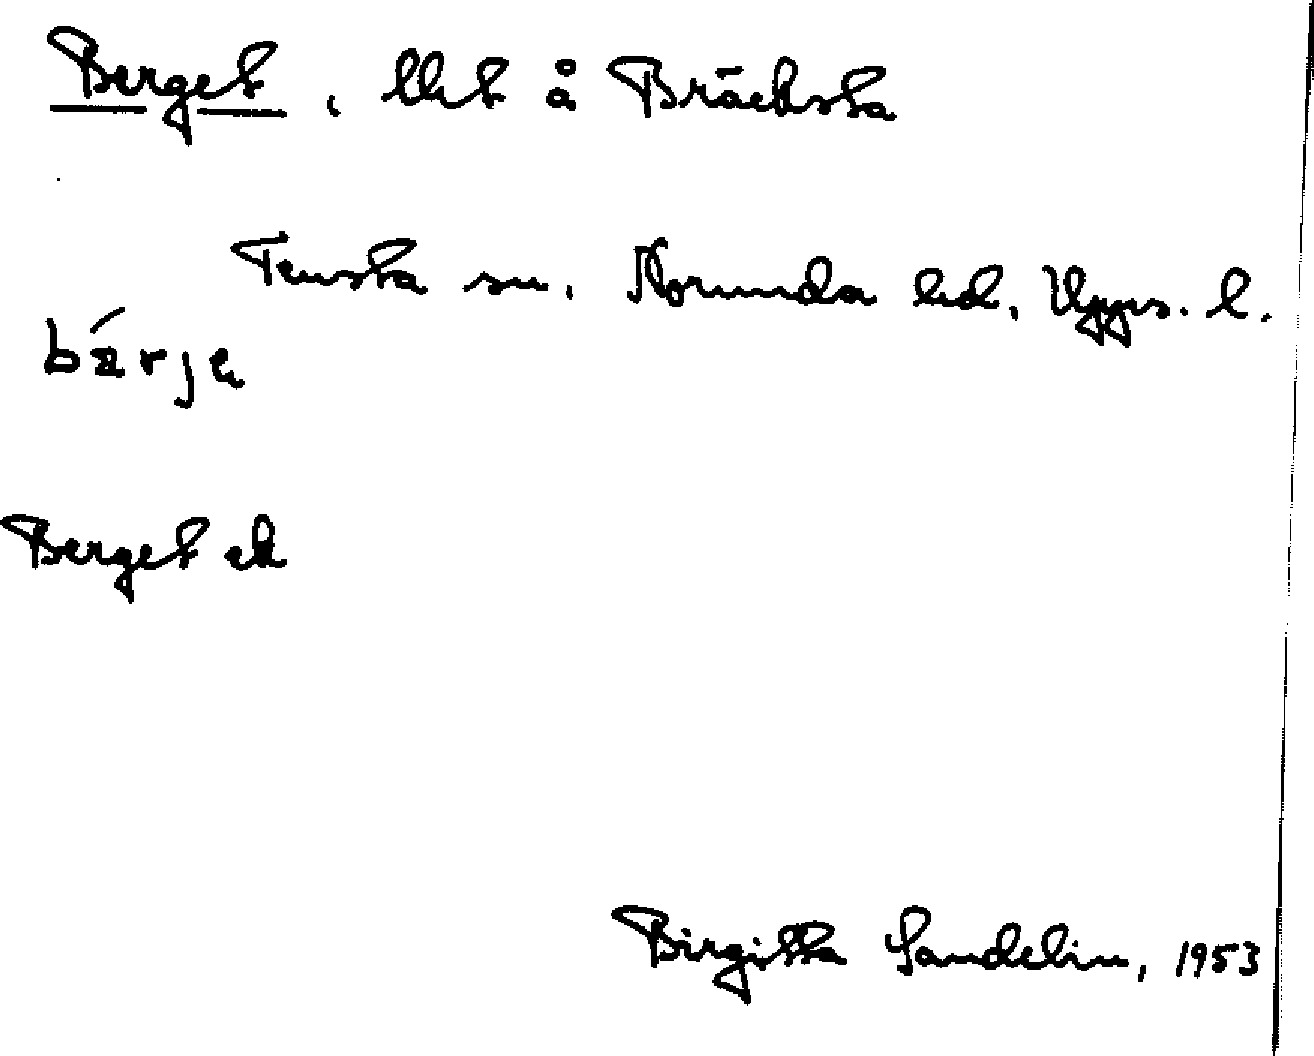 Berget, lht å Bräcksta
Tensta sn. Norunda hd. Upps. l.
bä́rjə
Berget ek
Birgitta Sandelin, 1953